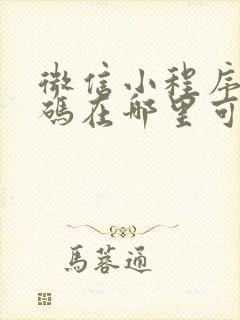 微信小程序
碼在哪里可
馬蓉通